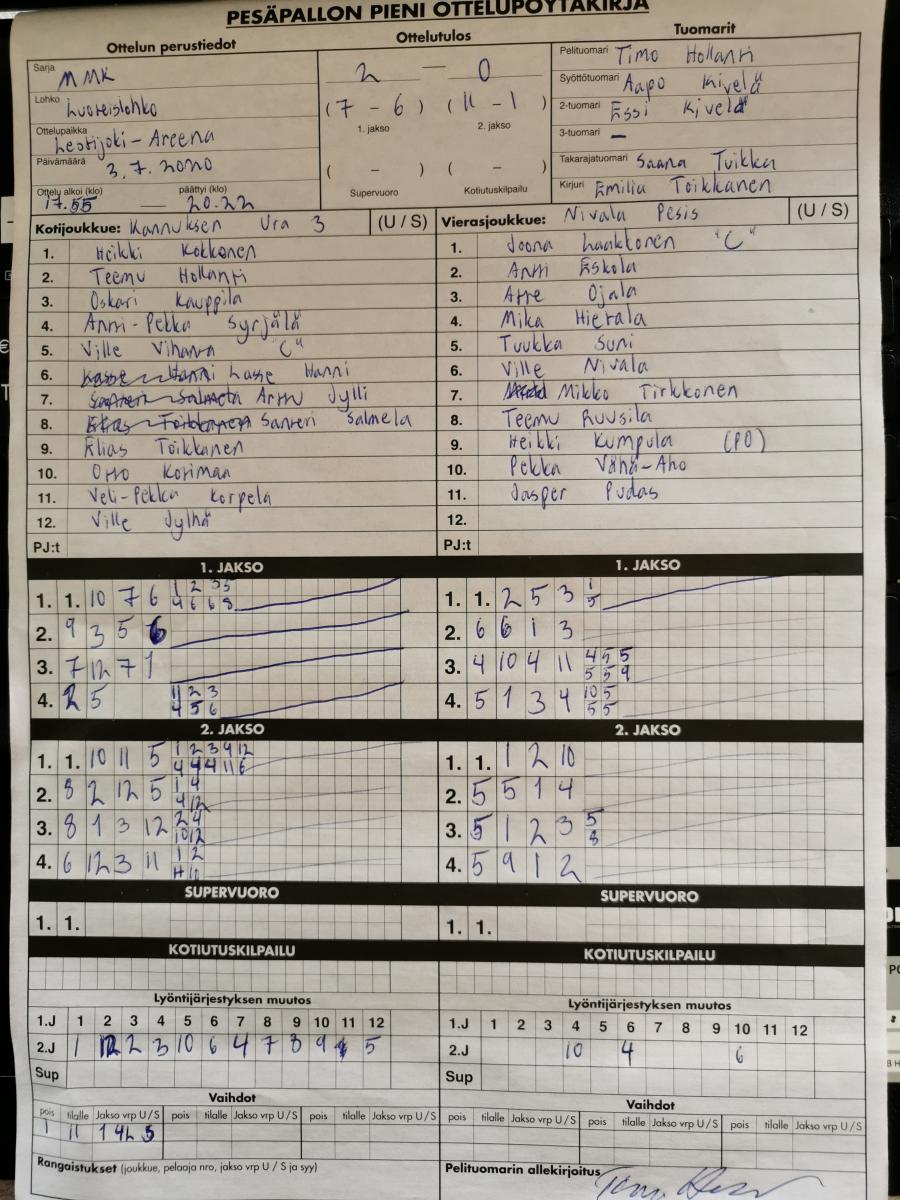 PESÄPALLON PIENI OTTELUPÖYTÄKIRJA
Ottelun perustiedot
Sarja MMK
Lohko Luoteislohko
Ottelupaikka Lestijoki-Areena
Päivämäärä 3.7.2020
Ottelu alkoi (klo) päättyi (klo)
17.55 — 20.22
Ottelutulos
2 — 0
(7 - 6) (11 - 1)
1. jakso 2. jakso
( - ) ( - )
Supervuoro Kotiutuskilpailu
Tuomarit
Pelituomari Timo Hollanti
Syöttötuomari Aapo Kivelä
2-tuomari Essi Kivelä
3-tuomari –
Takarajatuomari Saana Tuikka
Kirjuri Emilia Toikkanen
Kotijoukkue: Kannuksen Ura 3 (U / S)
1. Heikki Kokkonen
2. Teemu Hollanti
3. Oskari Kauppila
4. Antti-Pekka Syrjälä
5. Ville Vihanta "C"
6. Lasse Hanni
7. Arttu Jylli
8. Santeri Salmela
9. Elias Toikkanen
10. Otto Kotimaa
11. Veli-Pekka Korpela
12. Ville Jylhä
PJ:t
Vierasjoukkue: Nivala Pesis (U / S)
1. Joona Laaktonen "C"
2. Antti Eskola
3. Atte Ojala
4. Mika Hietala
5. Tuukka Suni
6. Ville Nivala
7. Mikko Tirkkonen
8. Teemu Ruusila
9. Heikki Kumpula (PO)
10. Pekka Vähä-Aho
11. Jasper Pudas
12.
PJ:t
1. JAKSO
1. 1. 10 7 6 1 2 3 5
4 6 6 8
2. 9 3 5 6
3. 7 12 7 1
4. 2 5 11 2 3
4 5 6
1. JAKSO
1. 1. 2 5 3 1
5
2. 6 6 1 3
3. 4 10 4 11 4 5 5
5 5 9
4. 5 1 3 4 10 5
5 5
2. JAKSO
1. 1. 10 11 5 1 2 3 9 12
4 4 4 11 6
2. 8 2 12 5 1 4
4 12
3. 8 1 3 12 2 4
10 12
4. 6 12 3 11 1 2
11 10
2. JAKSO
1. 1. 1 2 10
2. 5 5 1 4
3. 5 1 2 3 5
8
4. 5 9 1 2
SUPERVUORO
1. 1.
SUPERVUORO
1. 1.
KOTIUTUSKILPAILU
KOTIUTUSKILPAILU
Lyöntijärjestyksen muutos
1.J 1 2 3 4 5 6 7 8 9 10 11 12
2.J 1 12 2 3 10 6 4 7 8 9 5
Sup
Lyöntijärjestyksen muutos
1.J 1 2 3 4 5 6 7 8 9 10 11 12
2.J 10 4 6
Sup
Vaihdot
pois tilalle Jakso vrp U / S pois tilalle Jakso vrp U / S pois tilalle Jakso vrp U / S
1 11 1 4L 5
Vaihdot
pois tilalle Jakso vrp U / S pois tilalle Jakso vrp U / S pois tilalle Jakso vrp U / S
Rangaistukset (joukkue, pelaaja nro, jakso vrp U / S ja syy)
Pelituomarin allekirjoitus